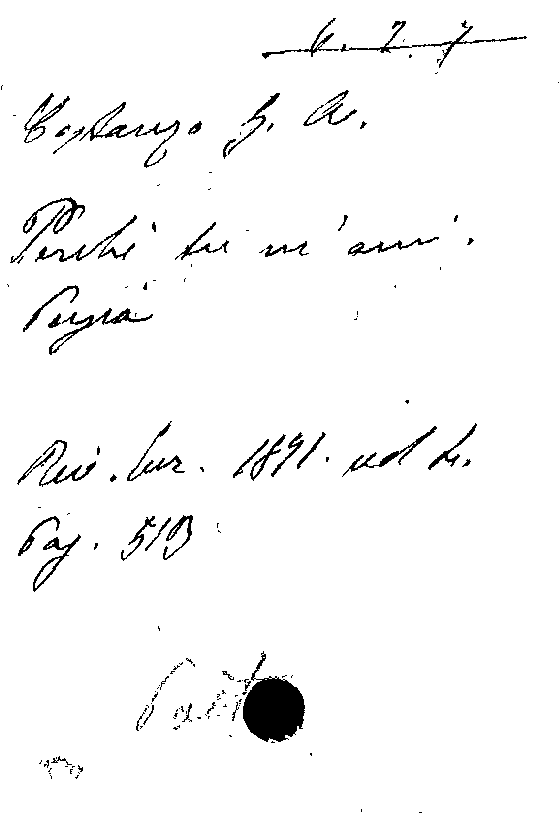 6. 7. 7
Costanzo G. A.
Perchè tu m'ami.
Poesia
Riv. Eur. 1871. vol
Pag. 513
Poet